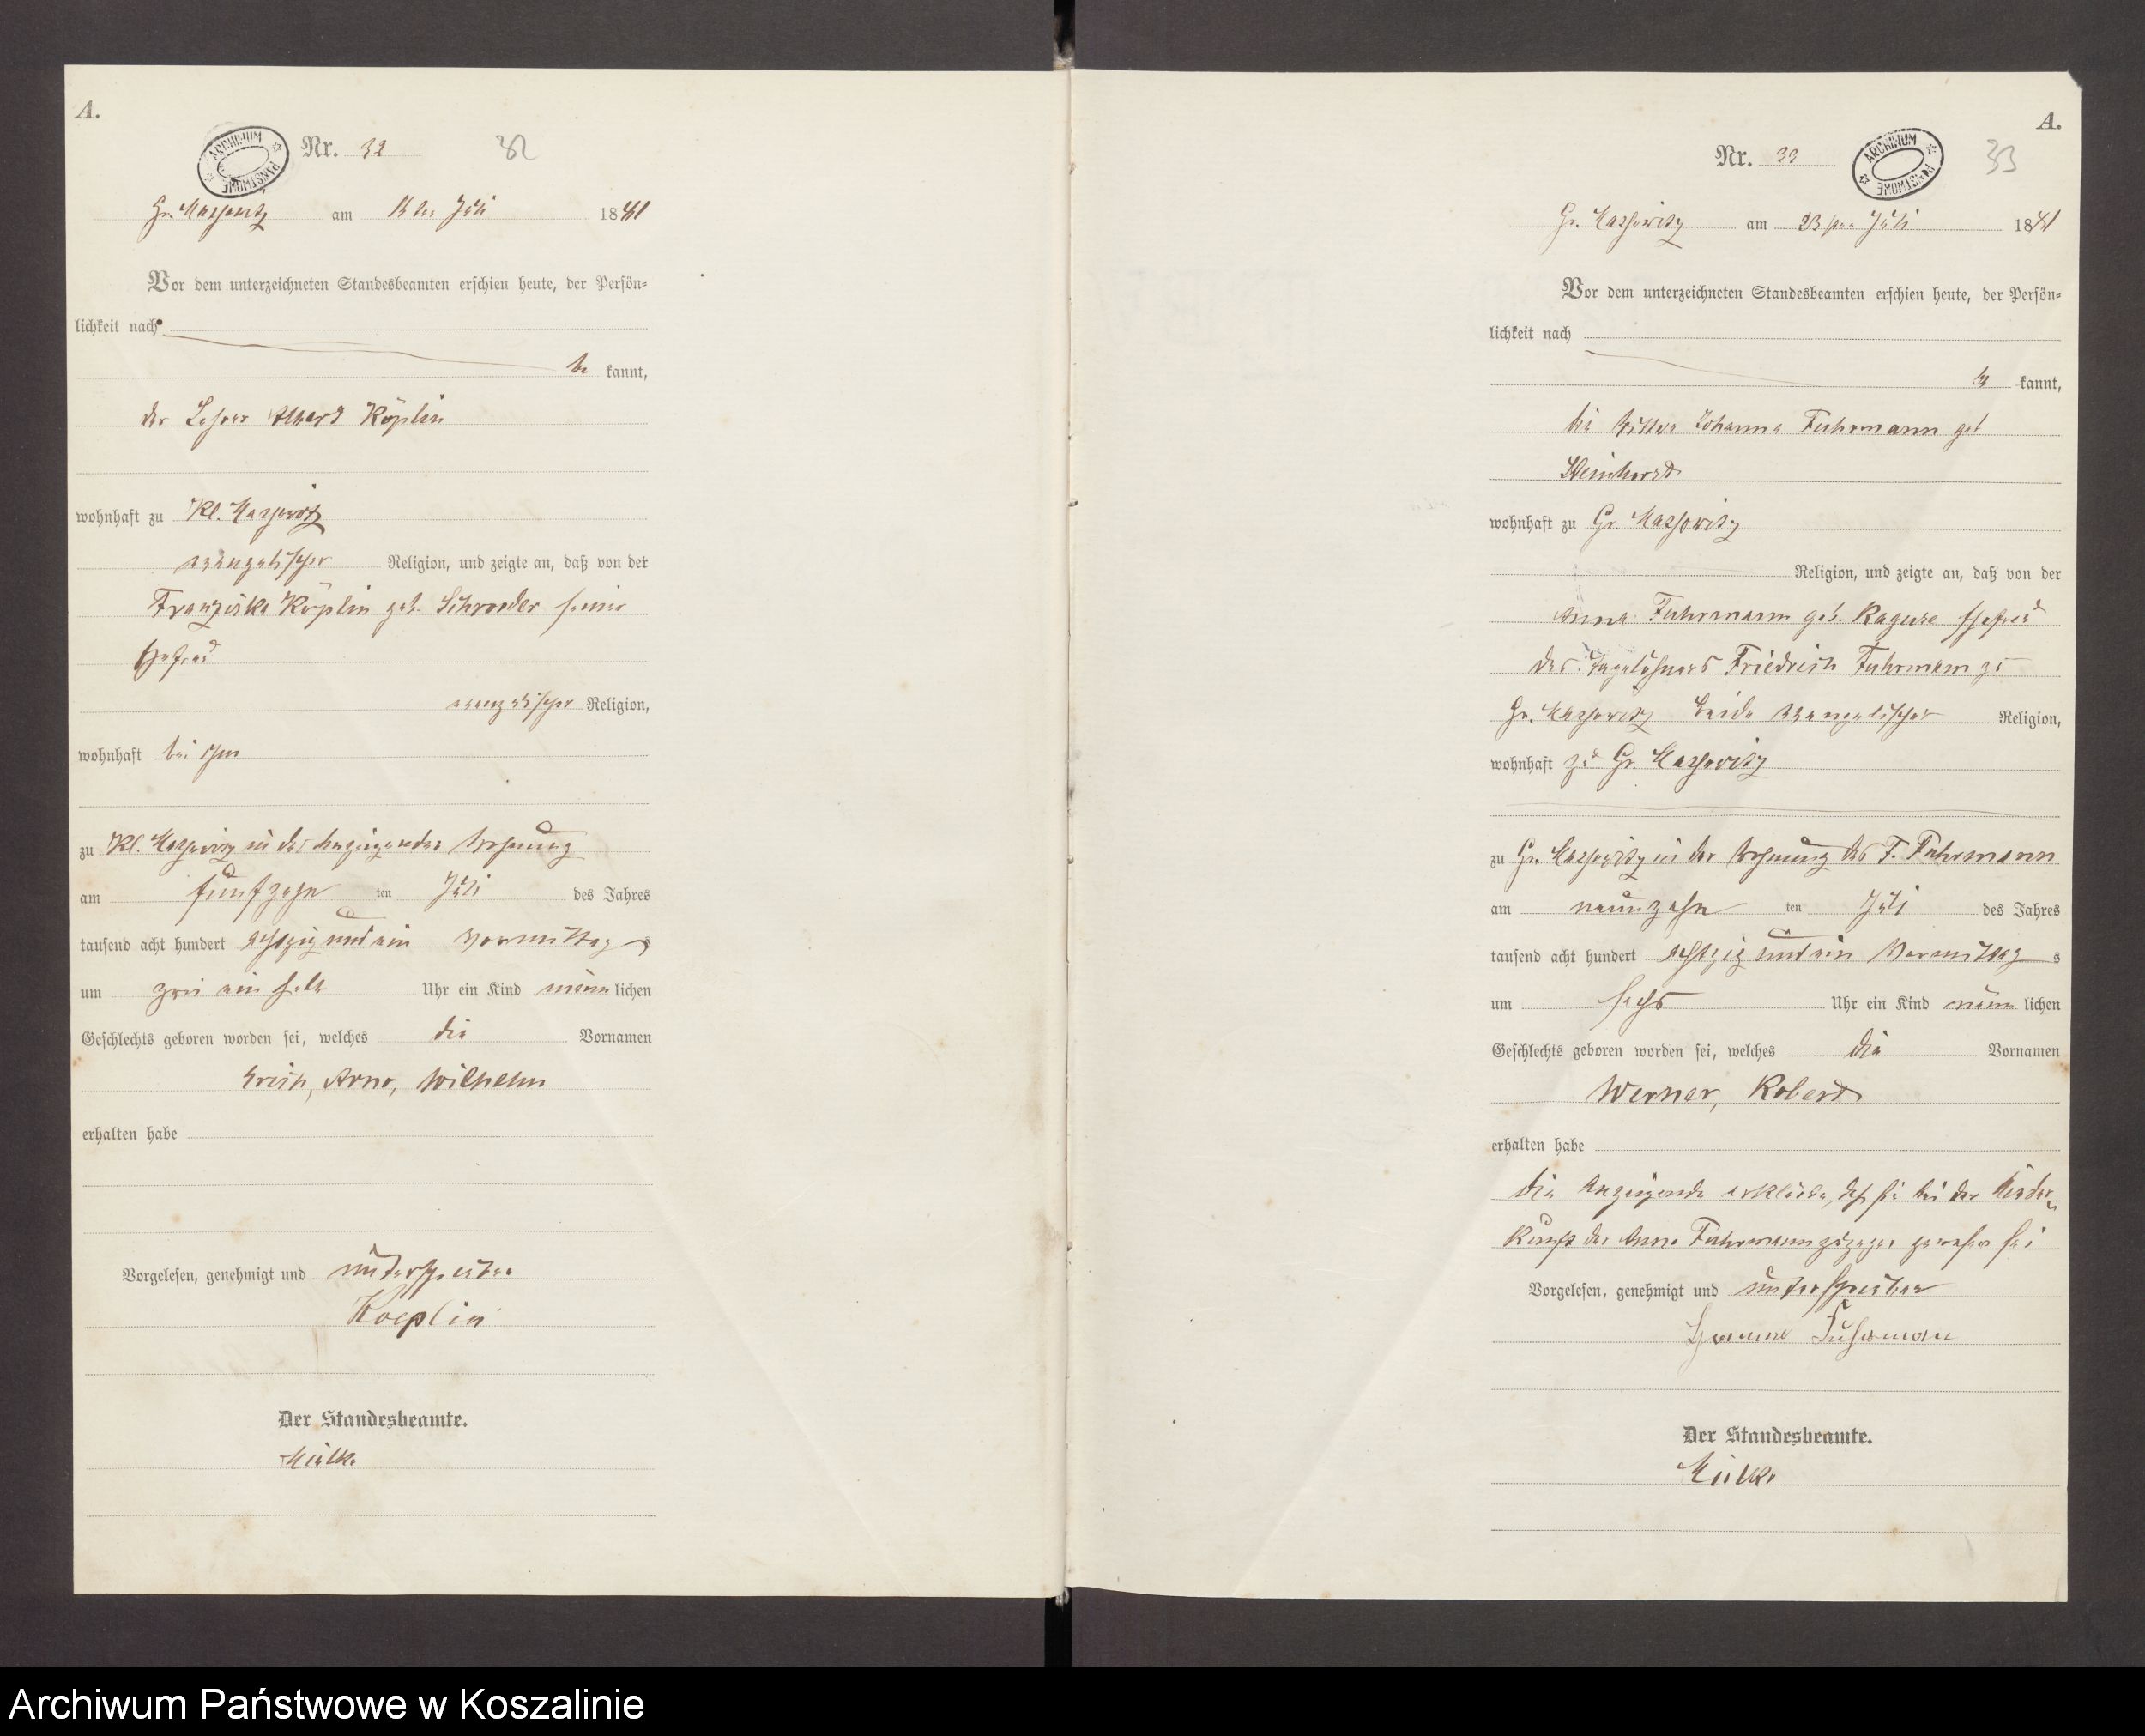 A.
ARCHIWUM PAŃSTWOWE
Nr. 32
32
Gr. Massowitz am Juli 1881
Vor dem unterzeichneten Standesbeamten erschien heute, der Persön-
lichkeit nach
be kannt,
der Lehrer Albert Köplin
wohnhaft zu Kl. Massowitz
evangelischer Religion, und zeigte an, daß von der
Franziska Köplin geb. Schroeder seiner
Ehefrau
evangelischer Religion,
wohnhaft bei ihm
zu Kl. Massowitz in des Anzeigenden Wohnung
am fünfzehn ten Juli des Jahres
tausend acht hundert achtzig und ein Vormittags
um ein halb Uhr ein Kind männlichen
Geschlechts geboren worden sei, welches die Vornamen
Erich, Arno, Wilhelm
erhalten habe
Vorgelesen, genehmigt und unterschrieben
Koeplin
Der Standesbeamte.
Mielke
A.
Nr. 33
ARCHIWUM PAŃSTWOWE
33
Gr. Massowitz am 23 ten Juli 1881
Vor dem unterzeichneten Standesbeamten erschien heute, der Persön-
lichkeit nach
be kannt,
die Wittwe Johanna Fuhrmann geb
Steinhorst
wohnhaft zu Gr. Massowitz
Religion, und zeigte an, daß von der
Anna Fuhrmann geb. Ehefrau
des Tagelöhners Friedrich Fuhrmann zu
Gr. Massowitz beide evangelischer Religion,
wohnhaft zu Gr. Massowitz
zu Gr. Massowitz in der Wohnung des F. Fuhrmann
am neunzehn ten Juli des Jahres
tausend acht hundert achtzig und ein Vormittags
um sechs Uhr ein Kind männ lichen
Geschlechts geboren worden sei, welches die Vornamen
Werner, Robert
erhalten habe
die Anzeigende erklärte, daß sie bei der Nieder-
kunft der Anna Fuhrmann zugegen gewesen sei
Vorgelesen, genehmigt und unterschrieben
Fuhrman
Der Standesbeamte.
Mielke
Archiwum Państwowe w Koszalinie